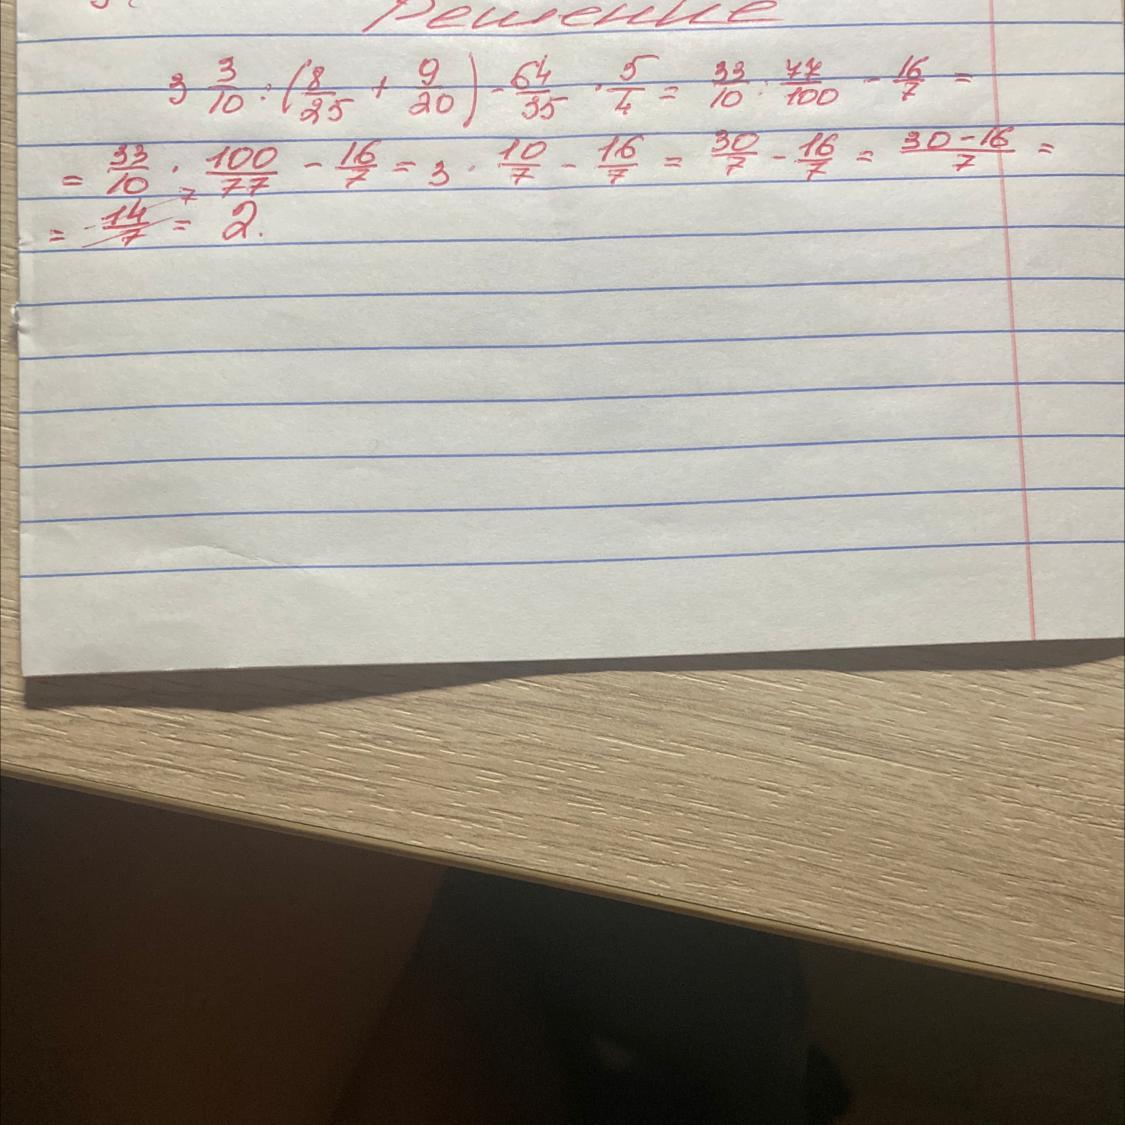 Решение
3 3/10 : (8/25 + 9/20) - 64/35 · 5/4 = 33/10 : 77/100 - 16/7 =
= 33/10 · 100/77 - 16/7 = 3 · 10/7 - 16/7 = 30/7 - 16/7 = 30-16/7 =
= 14/7 = 2.